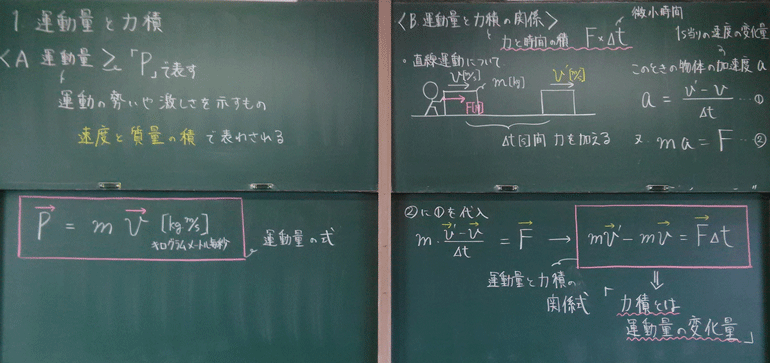 1. 運動量と力積
<A 運動量> 「P」で表す
運動の勢いや激しさを示すもの
速度と質量の積で表わされる
P = m v [kg・m/s]
キログラムメートル毎秒
運動量の式
<B 運動量と力積の関係>
力と時間の積 F×Δt
微小時間
・直線運動について
v[m/s] m[kg] v'[m/s]
F[N]
Δt[s]間 力を加える
1s当りの速度の変化量
このときの物体の加速度 a
a = v' - v / Δt …①
又 ma = F …②
②に①を代入
m・v' - v / Δt = F → mv' - mv = FΔt
運動量と力積の
関係式
「力積とは
運動量の変化量」